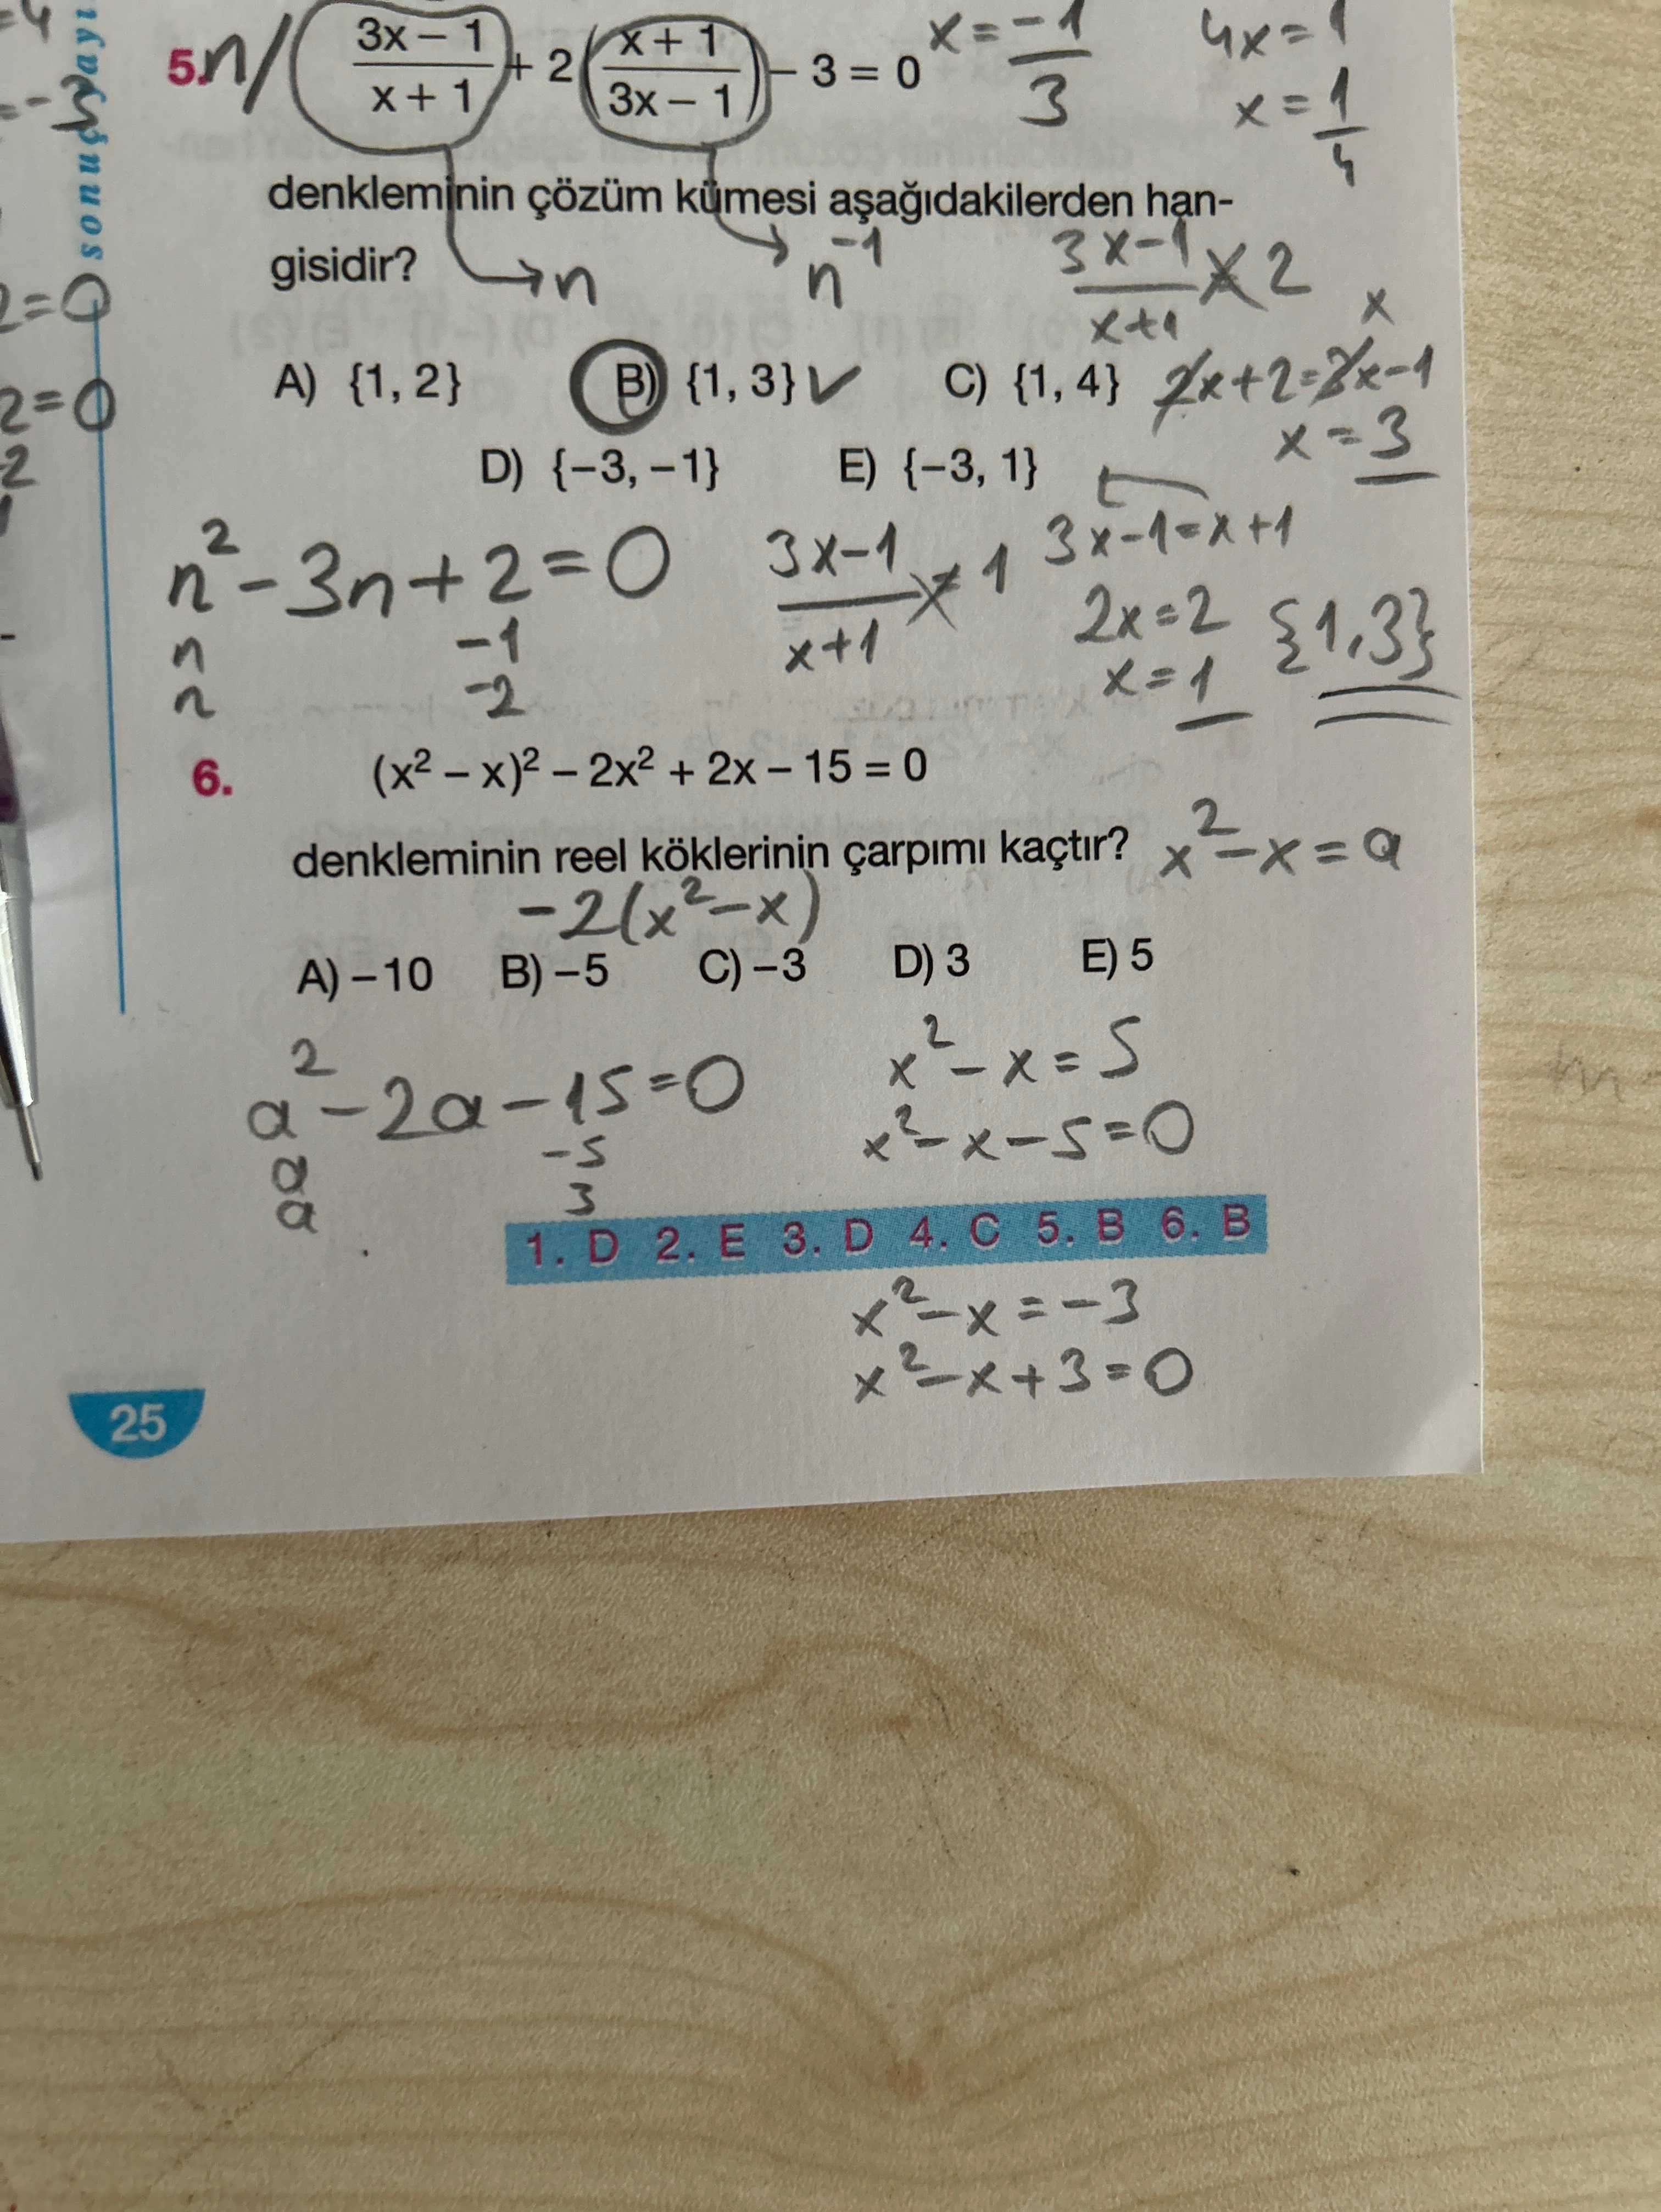 sonuç yayı
=4
=-3
2=0
2=0
-2
5. n/ (3x – 1)/(x + 1) + 2((x + 1)/(3x – 1)) – 3 = 0
x = -1/3
4x = 1
x = 1/4
denkleminin çözüm kümesi aşağıdakilerden han-
gisidir?
→ n
→ n⁻¹
(3x-1)/(x+1) = 2
x
2x+2=3x-1
x = 3
A) {1, 2} B) {1, 3} ✓ C) {1, 4}
D) {–3, –1} E) {–3, 1}
n² - 3n + 2 = 0
n -1
n -2
(3x-1)/(x+1) = 1
3x-1=x+1
2x=2
x=1
{1,3}
6. (x² – x)² – 2x² + 2x – 15 = 0
denkleminin reel köklerinin çarpımı kaçtır?
x² - x = a
-2(x²-x)
A) –10 B) –5 C) –3 D) 3 E) 5
a² - 2a - 15 = 0
a -5
a 3
x² - x = 5
x² - x - 5 = 0
1. D 2. E 3. D 4. C 5. B 6. B
x² - x = -3
x² - x + 3 = 0
25